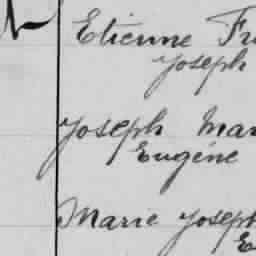 Etienne
Joseph
Joseph
Eugéne
Marie Joseph